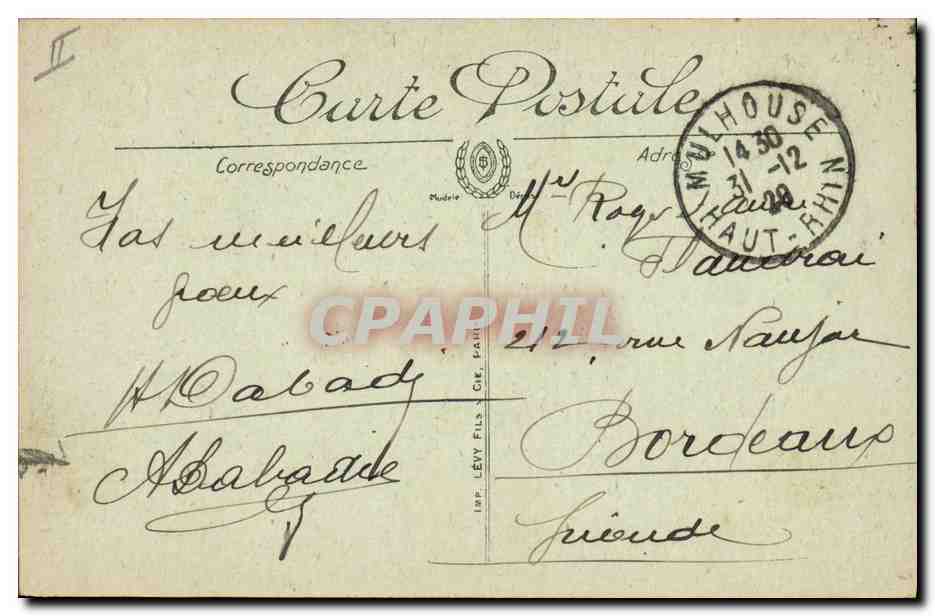 II
Carte Postale
Correspondance
Adresse
Modèle Déposé
MULHOUSE
14 30
31 -12
29
HAUT-RHIN
meilleurs
voeux
A Labadie
CPAPHIL
IMP. LÉVY FILS & CIE, PARIS
Mr Roger
212, rue Naujac
Bordeaux
Gironde